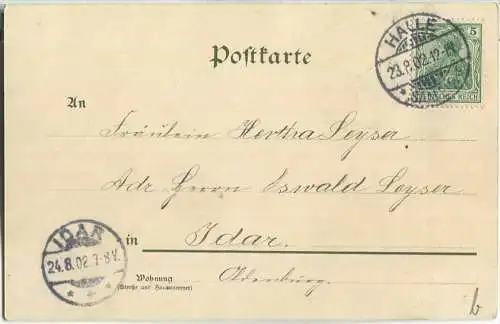 Postkarte
HALLE
23.8.02.12-1N
5
An
Fräulein Hertha Leyser
Adr Herrn Oswald Leyser
in Idar.
IDAR
24.8.02.7-8V.
Wohnung
(Straße und Hausnummer)
Oldenburg.
b